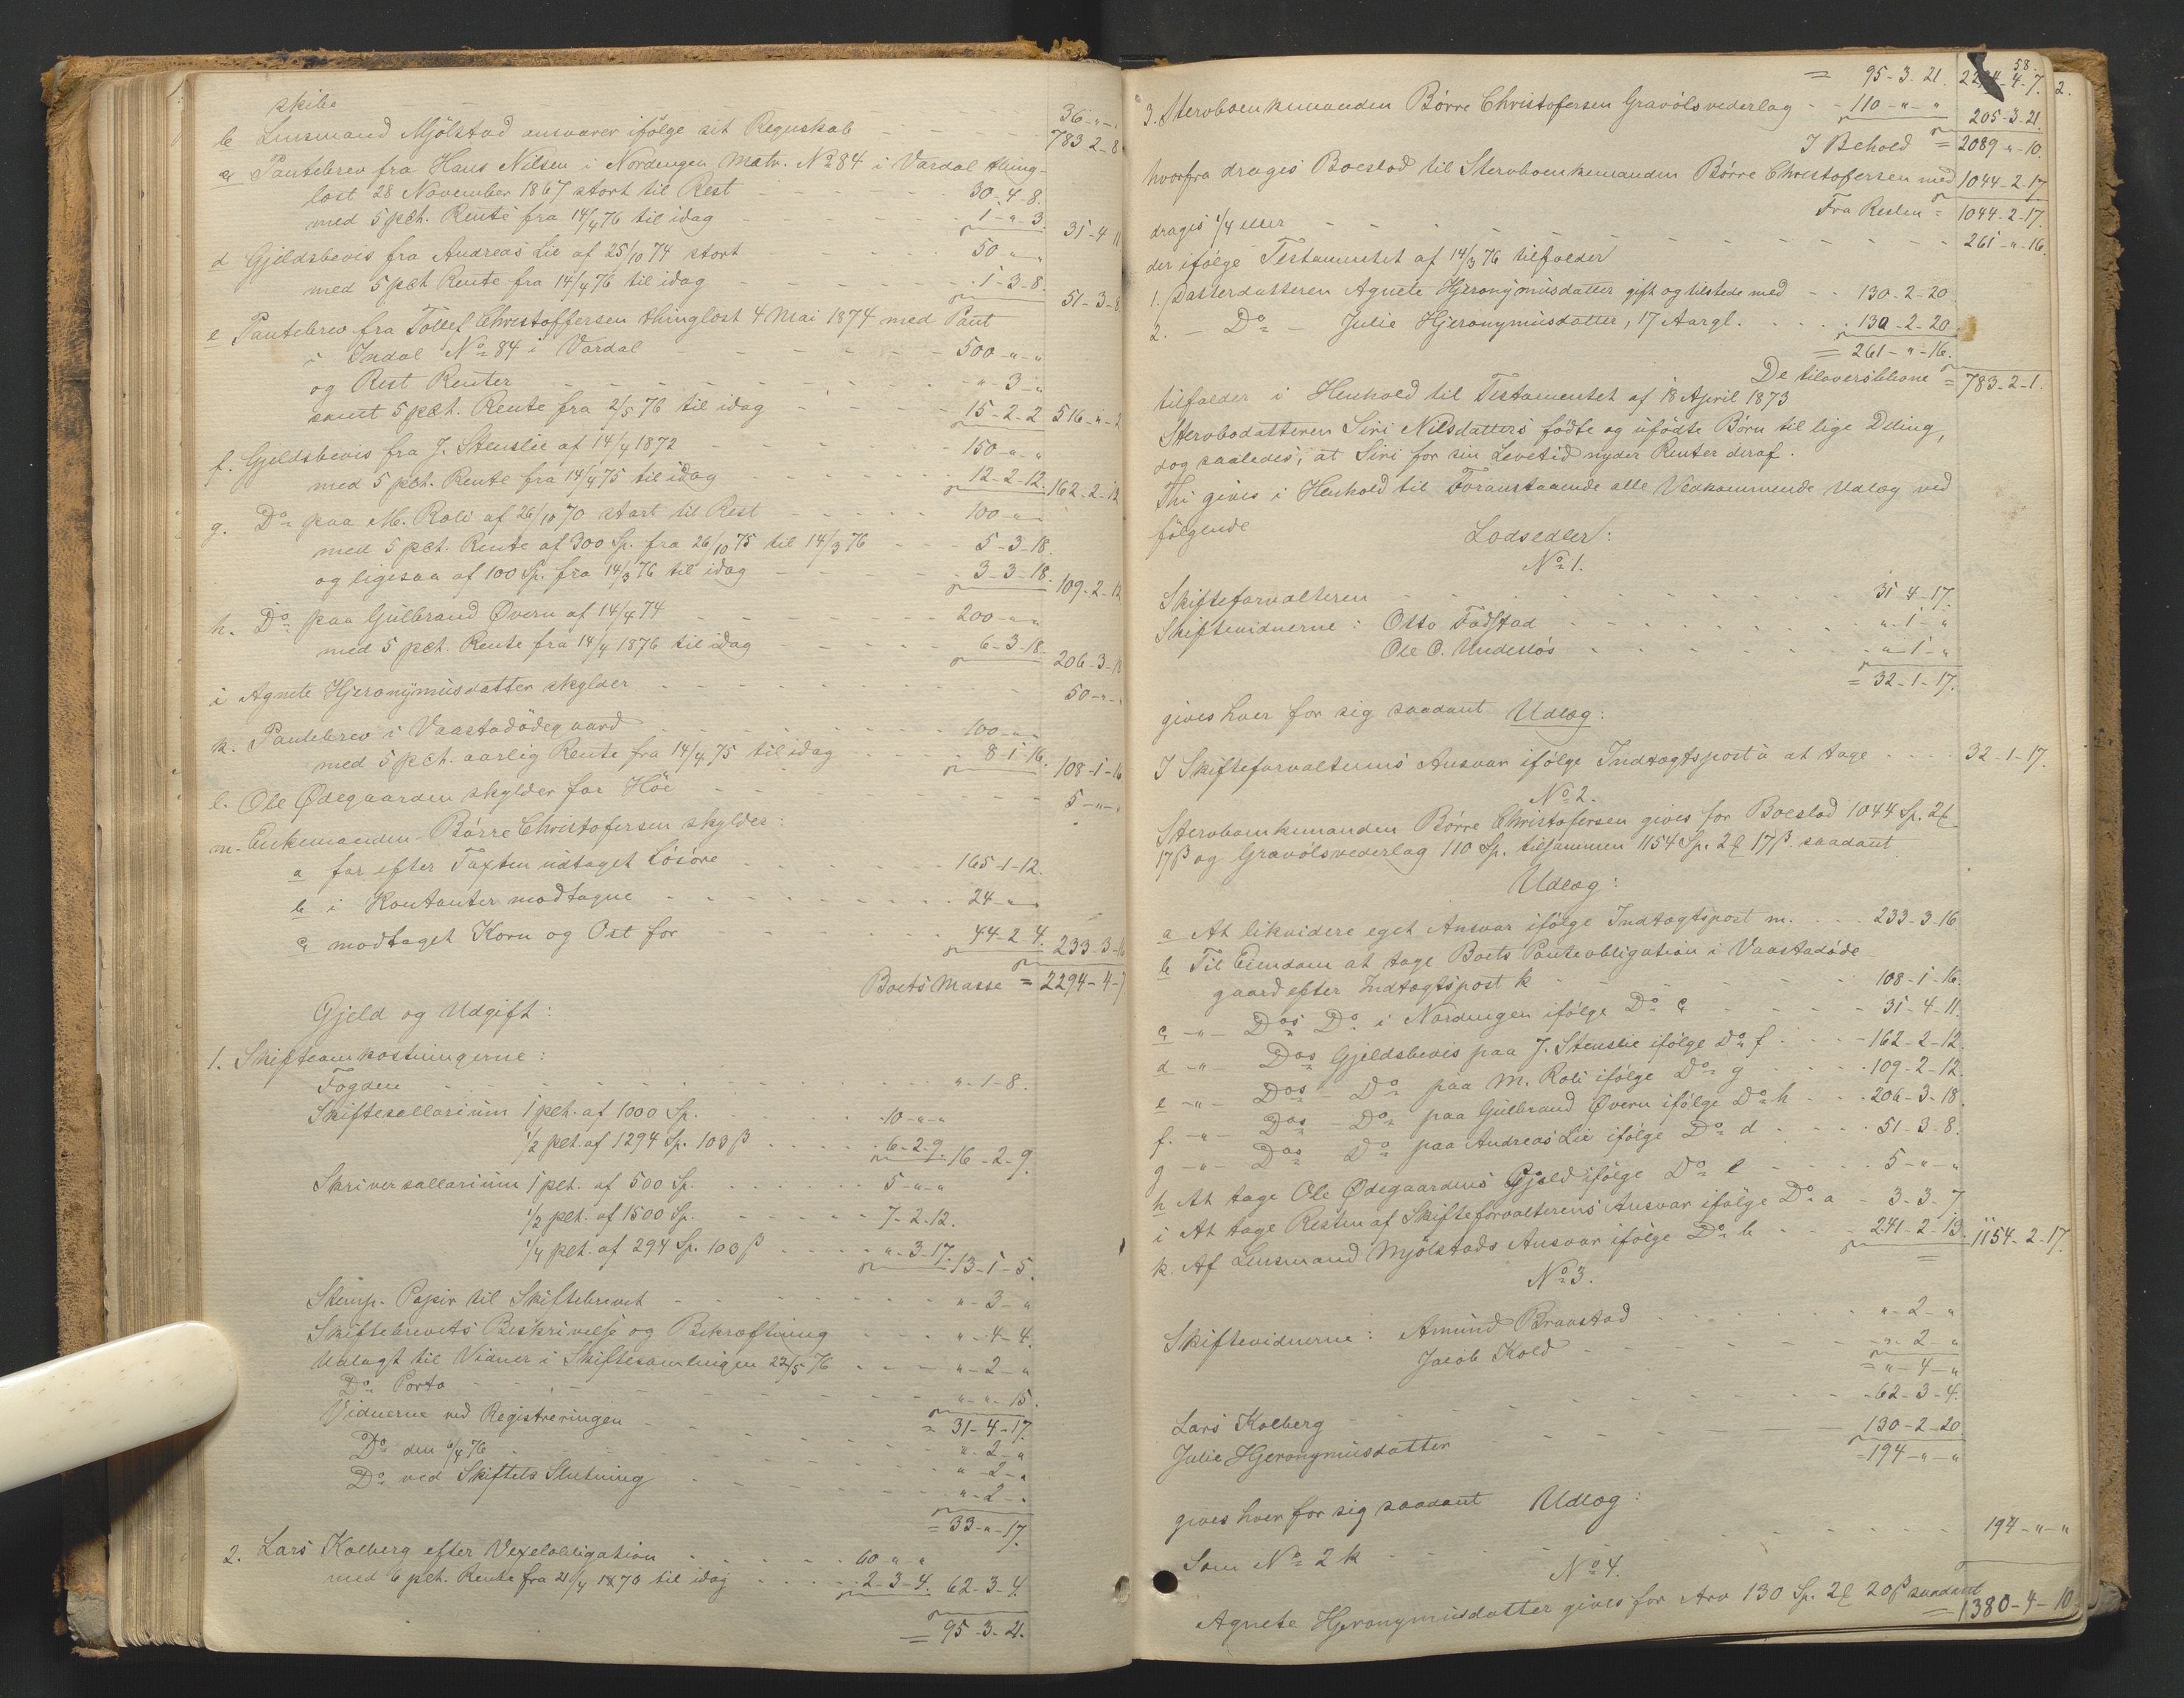 skibe - - - - - - - - 36 - „ -
b Lensmand Mjölstad ansvarer ifølge sit Regnskab - - - - 783 - 2 - 8
c Pantebrev fra Hans Nilsen i Nordengen Matr. No 84 i Vardal thing-
løst 28 November 1867 stort til Rest - - - - 30 - 4 - 8.
med 5 pct. Rente fra 14/4 76 til idag - - - - 1 - „ - 3. 31 - 4 - 11
d Gjeldsbevis fra Andreas Lie af 25/10 74 stort - - - - 50 - „ - „
med 5 pct Rente fra 14/4 76 til idag - - - - 1 - 3 - 8. 51 - 3 - 8
e Pantebrev fra Tollef Christoffersen thinglöst 4 Mai 1874 med Pant
i Indal No 84 i Vardal - - - - 500 - „ - „
og Rest Renter - - - - „ - 3 - „
samt 5 pct. Rente fra 2/5 76 til idag - - - - 15 - 2 - 2 516 - „ - 2
f. Gjeldsbevis fra J. Stenslie af 14/4 1872 - - - 150 - „ - „
med 5 pct. Rente fra 14/4 75 til idag - - - - 12 - 2 - 12. 162 - 2 - 12
g. Do paa M. Roli af 26/10 70 stort til Rest - - - - 100 - „ -
med 5 pct. Rente af 300 Sp. fra 26/10 75 til 14/3 76 - - - 5 - 3 - 18.
og ligesaa af 100 Sp. fra 14/3 76 til idag - - - - 3 - 3 - 18. 109 - 2 - 12
h. Do paa Gulbrand Øvern af 14/4 74 - - - - 200 - „ -
med 5 pct. Rente fra 14/4 1876 til idag - - - - 6 - 3 - 18. 206 - 3 - 18
i Agnete Hjeronymusdatter skylder - - - - 50 - „ -
k. Pantebrev i Vaastadödegaard - - - - 100 - „ -
med 5 pct. aarlig Rente fra 14/4 75 til idag - - - 8 - 1 - 16. 108 - 1 - 16
l. Ole Ødegaarden skylder for Höe - - - - 5 - „ -
m. Enkemanden Börre Christofersen skylder:
a for efter Taxten udtaget Lösöre - - - - 165 - 1 - 12.
b i Kontanter modtagne - - - - 24 - „ -
c modtaget Korn og Ost for - - - - 44 - 2 - 4. 233 - 3 - 16
Boets Masse = 2294 - 4 - 7
Gjeld og Udgift:
1. Skifteomkostningerne:
Fogden - - - - „ - 1 - 8.
Skiftesallarium 1 pct. af 1000 Sp. - - - 10 - „ - „
1/2 pct. af 1294 Sp. 103 β - - - 6 - 2 - 9. 16 - 2 - 9.
Skriversallarium 1 pct. af 500 Sp. - - - 5 - „ - „
1/2 pct. af 1500 Sp. - - - 7 - 2 - 12.
1/4 pct. af 294 Sp. 103 β - - - „ - 3 - 17. 13 - 1 - 5.
Stemp. Papir til Skiftebrevet - - - - „ - 3 - „
Skiftebrevets Beskrivelse og Bekræftning - - - „ - 4 - 4.
Udlagt til Vidner i Skiftesamlingen 22/5 76 - - - „ - 2 - „
Do Porto - - - - „ - „ - 15.
= 31 - 4 - 17.
Vidnerne ved Registreringen - - - - „ - 2 - „
Do den 6/4 76 - - - - „ - 2 - „
Do ved Skiftets Slutning - - - - „ - 2 - „
= 33 - „ - 17.
2. Lars Kolberg efter Vexelobligation - - - - 60 - „ - „
med 6 pct. Rente fra 21/4 1876 til idag - - - 2 - 3 - 4. 62 - 3 - 4.
= 95 - 3 - 21.
58.
= 95 - 3 - 21. 2294 - 4 - 7.
3. Stervboenkemanden Börre Christofersen Gravölsvederlag - - 110 - „ - „ 205 - 3 - 21.
I Behold = 2089 - „ - 10.
hvorfra drages Boeslod til Stervboenkemanden Börre Christofersen med 1044 - 2 - 17
Fra Resten = 1044 - 2 - 17.
drages 1/4 eller - - - - 261 - „ - 16.
der ifølge Testamentet af 14/3 76 tilfalder
1. Datterdatteren Agnete Hjeronymusdatter gift og tilstede med - - 130 - 2 - 20
2. - Do - Julie Hjeronymusdatter, 17 Aargl. - - - 130 - 2 - 20
= 261 - „ - 16.
De tiloversblevne = 783 - 2 - 1.
tilfalder i Henhold til Testamentet af 18 April 1873
Stervbodatteren Siri Nilsdatters födte og ufödte Börn til lige Deling,
dog saaledes, at Siri for sin Levetid nyder Renter deraf.
Thi gives i Henhold til Foranstaaende alle Vedkommende Udlæg ved
følgende Lodsedler:
No 1.
Skifteforvalteren - - - - 31 - 4 - 17.
Skiftevidnerne: Otto Fodstad - - - - „ - 1 - „
Ole O. Undeslös - - - - „ - 1 - „
= 32 - 1 - 17.
gives hver for sig saadant Udlæg:
I Skifteforvalterens Ansvar ifølge Indtægtspost a at tage - - - 32 - 1 - 17.
No 2.
Stervboenkemanden Börre Christofersen gives for Boeslod 1044 Sp. 2 ℔
17 β og Gravölsvederlag 110 Sp. tilsammen 1154 Sp. 2 ℔ 17 β saadant
Udlæg:
a At likvidere eget Ansvar ifølge Indtægtspost m. - - 233 - 3 - 16
b Til Eiendom at tage Boets Panteobligation i Vaastadöde-
gaard efter Indtægtspost k - - - - 108 - 1 - 16.
c - „ - Dos Do i Nordengen ifølge Do c - - - 31 - 4 - 11.
d - „ - Dos Gjeldsbevis paa J. Stenslie ifølge Do f - - - 162 - 2 - 12.
e - „ - Dos - Do paa M. Roli ifølge Do g - - - 109 - 2 - 12.
f. - „ - Dos - Do paa Gulbrand Øvern ifølge Do h - - - 206 - 3 - 18.
g - „ - Dos Do paa Andreas Lie ifølge Do d - - - 51 - 3 - 8.
h At tage Ole Ødegaardens Gjeld ifølge Do l - - - 5 - „ - „
i At tage Resten af Skifteforvalterens Ansvar ifølge Do a - 3 - 3 - 7
k. Af Lensmand Mjölstads Ansvar ifølge Do b - - 241 - 2 - 13. 1154 - 2 - 17.
No 3.
Skiftevidnerne: Amund Braastad - - - - „ - 2 - „
Jacob Kold - - - - „ - 2 - „
= „ - 4 - „
Lars Kolberg - - - - 62 - 3 - 4.
Julie Hjeronymusdatter - - - - 130 - 2 - 20
= 194 - „ - „
gives hver for sig saadant Udlæg:
Som No 2 k - - - - 194 - „ - „
No 4.
Agnete Hjeronymusdatter gives for Arv 130 Sp. 2 ℔ 20 β saadant
= 1380 - 4 - 10.